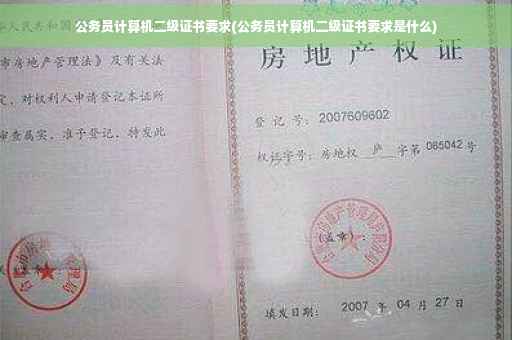 公务员计算机二级证书要求(公务员计算机二级证书要求是什么)
华人民共和国
市房地产管理法》及有关法
定，对权利人申请登记本证所
审查属实，准予登记，特发此
房地产权证
登记号：2007609602
权证字号：房地权 庐 字第 065042 号
(盖章)：
填发日期： 2007 年 04 月 27 日